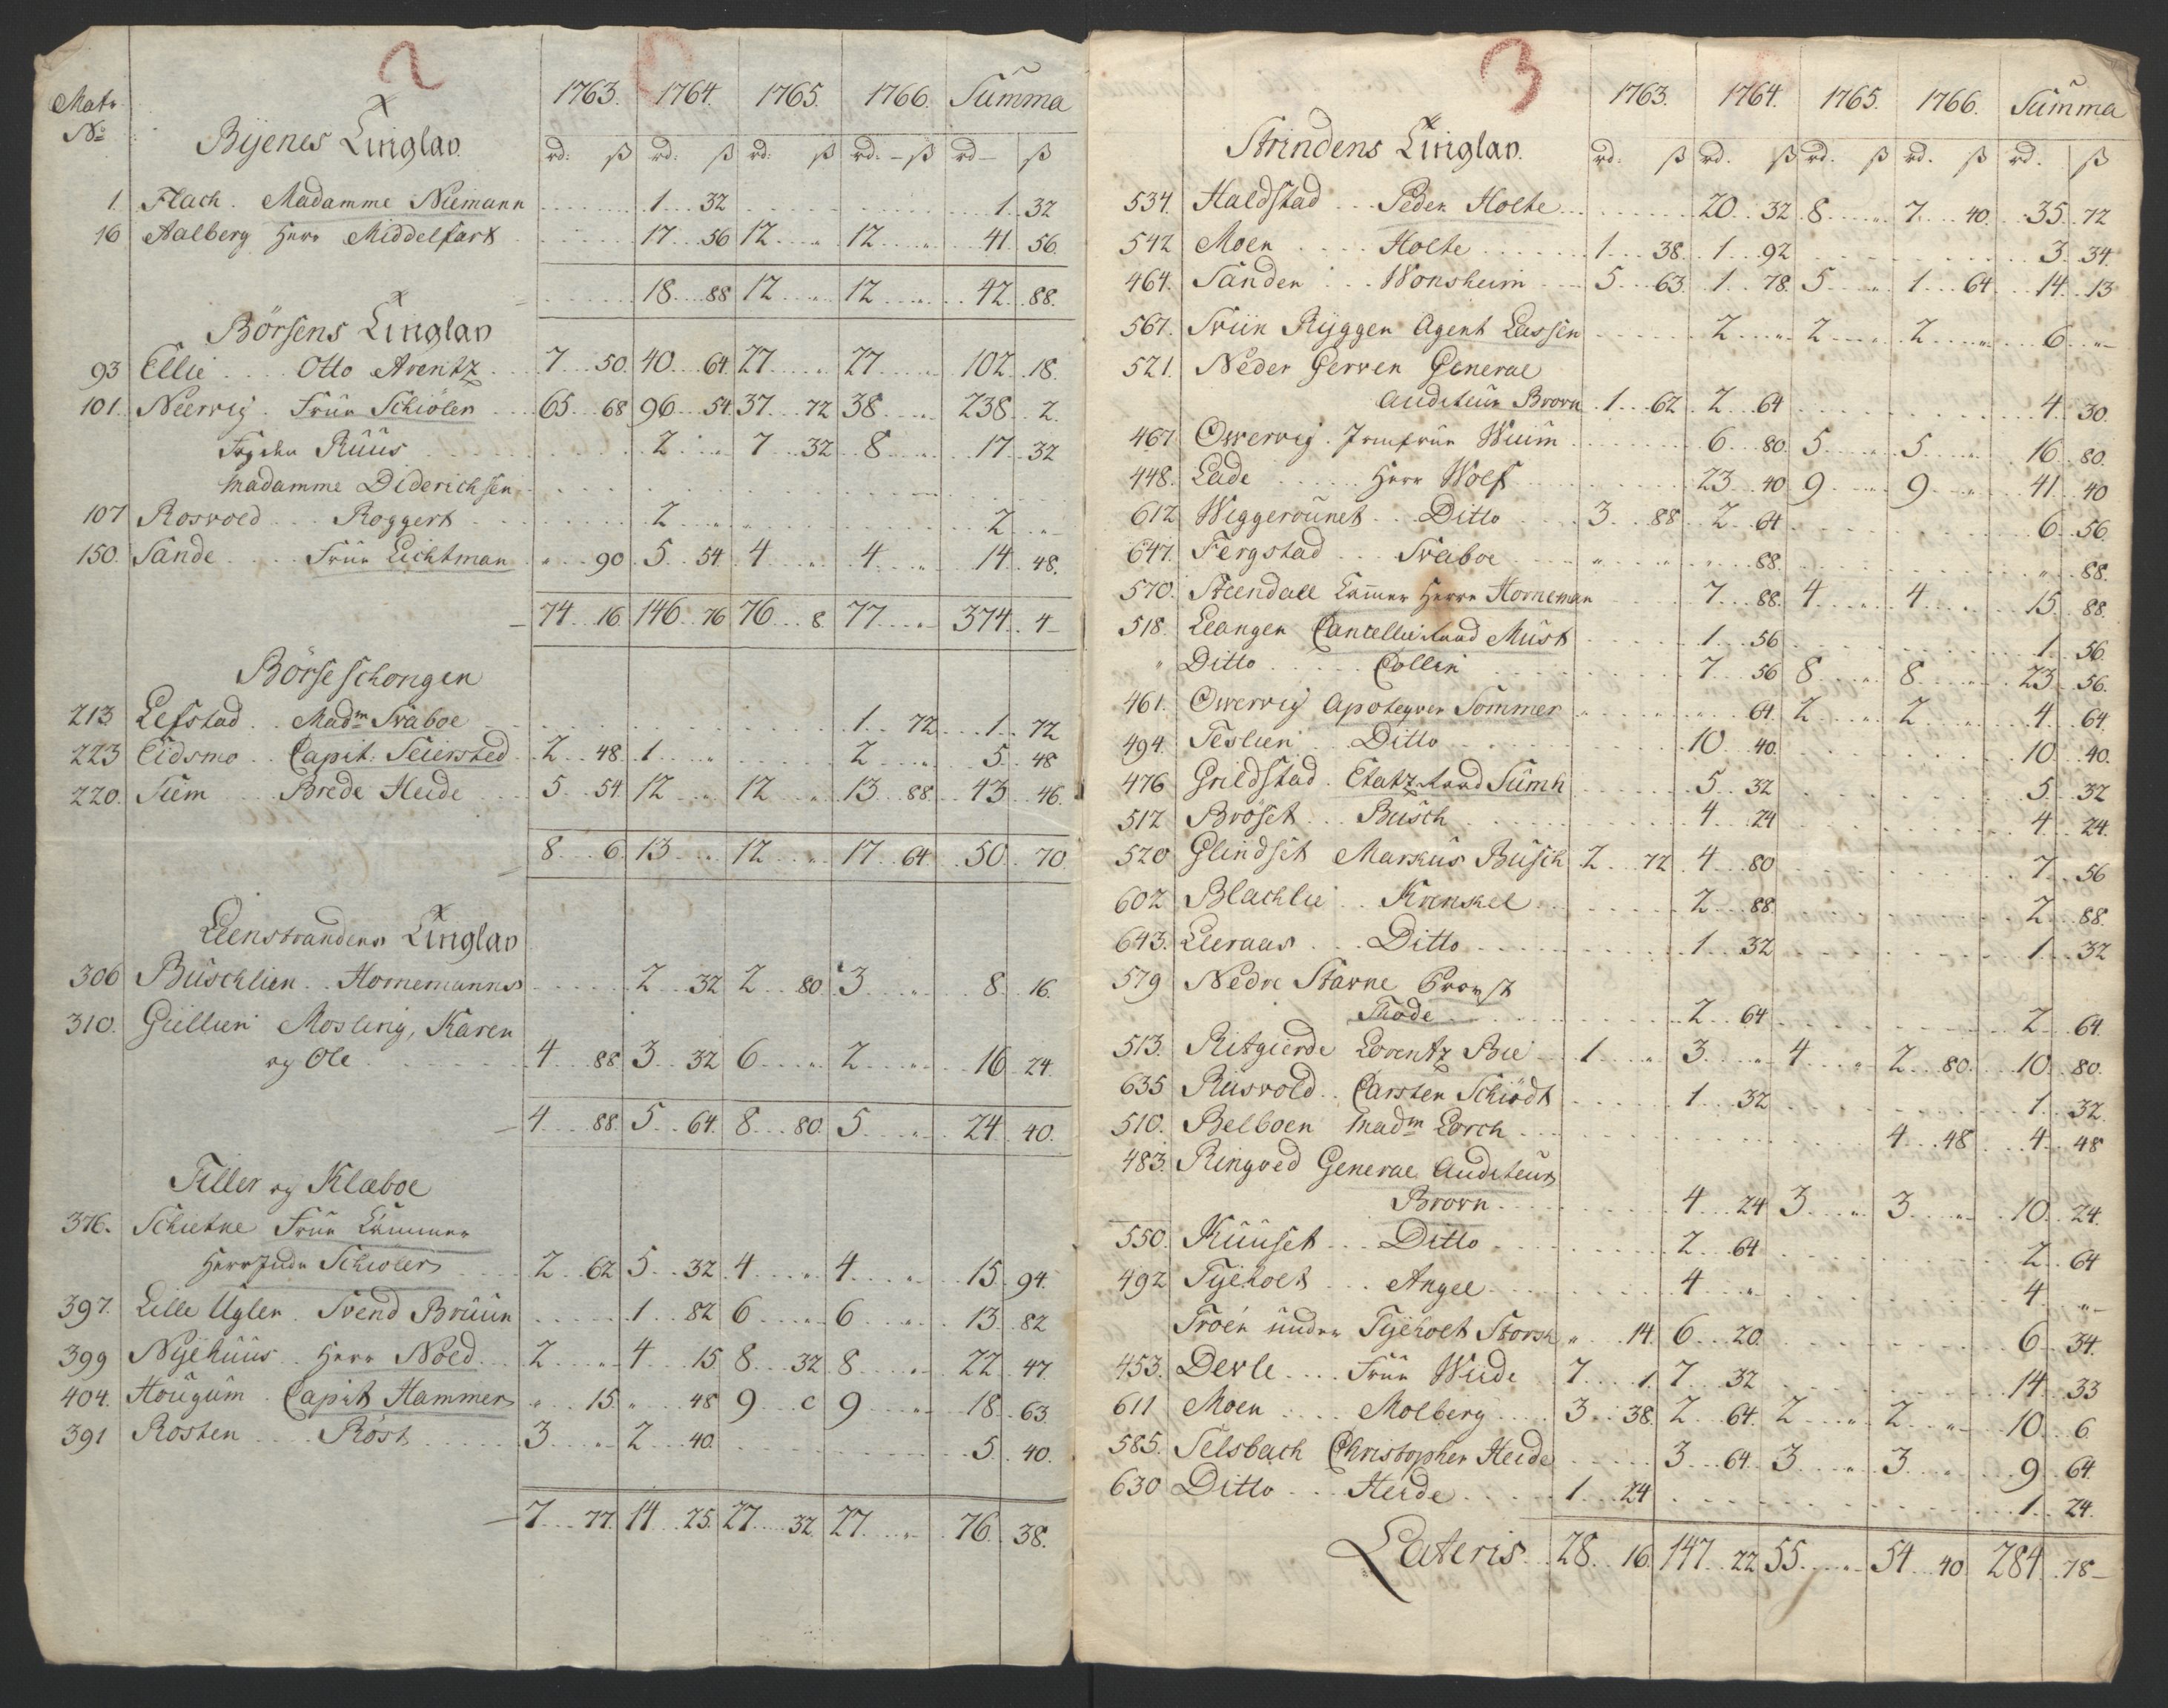 2
Matr No 1763. 1764. 1765. 1766. Summa
Bÿenes Tinglav rd: ß rd: ß rd: ß rd. ß rd ß
1. Flach. Madamme Niemann 1 32 1. 32
16 Aalberg Herr Middelfart 17 56 12 " 12 " 41 56.
18 88 12 " 12 " 42 88.
Börsens Tinglav
93 Ellie Otto Arentz 7 50 40 64 27 27 " 102 18.
101. Neervig. Frür Schiöler 65 68 96 54 37 72 38 238 2.
Fogden Rüüs 2 " 7 32 8 17 32
Madamme Diderichsen
107 Rosvold Roggert 2 " 2 "
150. Sande Frür Lichtman " 90 5 54 4 " 4 " 14 48.
74 16 146 76 76 8 77 " 374 4
Börseschongen
213 Lefstad Madm Svaboe 1 72 1 72
223 Eidsmo Capit: Seiersted 2 48 1 " 2 " 5 48
220. Süm Brede Heide 5 54 12 " 12 " 13 88 43 46.
8 6 13 " 12 " 17 64 50 70
Leenstrandens Tinglav
306 Büschlien Hornemanns 2 32 2 80 3 " 8 16.
310. Giellien Mosling, Karen
og Ole 4 88 3 32 6 " 2 " 16 24.
4 88 5 64. 8 80 5 " 24 40.
Tiller og Klæboe
376. Schietne Frür Cammer
Herrinde Schiolers 2 62 5 32 4 " 4 " 15 94.
397. Lille Ugler Svend Brüün 1 82 6 " 6 " 13 82
399 Nÿehüüs Herr Nold 2 " 4 15 8 32 8 22 47.
404. Hougum Capit Hammer " 15 " 48 9 c 9 " 18 63.
391 Rosten Röst 3 " 2 40 5 40.
7 77. 14 25. 27 32 27 " 76 38.
3
1763. 1764. 1765. 1766. Summa
Strindens Tinglav. rd: ß rd. ß rd. ß rd. ß rd. ß
534. Haldstad Peder Holte 20 32 8 " 7 40 35 72
542 Moen Holte 1 38. 1 92 3 34.
464. Sanden Wonsheim 5 63. 1 78. 5 " 1 64 14 13
567. Sviin Rÿggen Agent Lassen 2 " 2 " 2 " 6 "
521. Neder Gerven General
Auditeur Brovn 1 62 2 64 4 30.
467 Owervig. Jomfrür Wüim 6 80. 5 5 16 80.
448. Lade Herr Wolf 23 40 9 9 41 40
612 Weggerounet Ditto 3 88 2 64 6 56
647. Fergstad Svaboe " " " 88. " 88.
570. Steendall Cammer Herre Horneman 7 88. 4 4 15 88
518. Leangen Cancellieraad Müst 1 56 1 56
" Ditto Collin 7 56 8 8 23 56.
461. Owervig Apoteqver Sommer " " " 64 2 " 2 " 4 64
494. Teslien Ditto 10 40. 10 40.
476 Grildstad Etatzraad Sümh 5 32 5 32
512 Bröset Büsch 4 24 4 24.
520 Glindset Markus Büsch 2 72 4 80 7 56
602 Blachlie Krenkel 2 88. 2 88.
643. Leeraas Ditto 1 32 1 32
579 Nedre Starne Provst
Thode 2 64 2 64
513. Ritgierde Lorentz Bie 1 " 3 " 4 " 2 80. 10 80.
635 Rüsvold Carsten Schiödt 1 32 1 32.
510. Belboen Madm Lorch 4 48 4 48
483. Ringved General Auditeur
Brovn 4 24 3 " 3 " 10 24.
550. Küüset Ditto 2 64 2 64
492 Tÿeholt Angel 4 " 4 "
Troén ünder Tÿeholt Storch " 14. 6 20 6 34.
453. Devle Frür Wiide 7 1. 7 32 14 33
611 Moen Molberg 3 38. 2 64. 2 " 2 " 10 6
585. Selsbach Christopher Heide 3 64. 3 " 3 9 64.
630 Ditto Heide 1 24 1 24.
Lateris 28 16 147 22 55 " 54 40 284 78